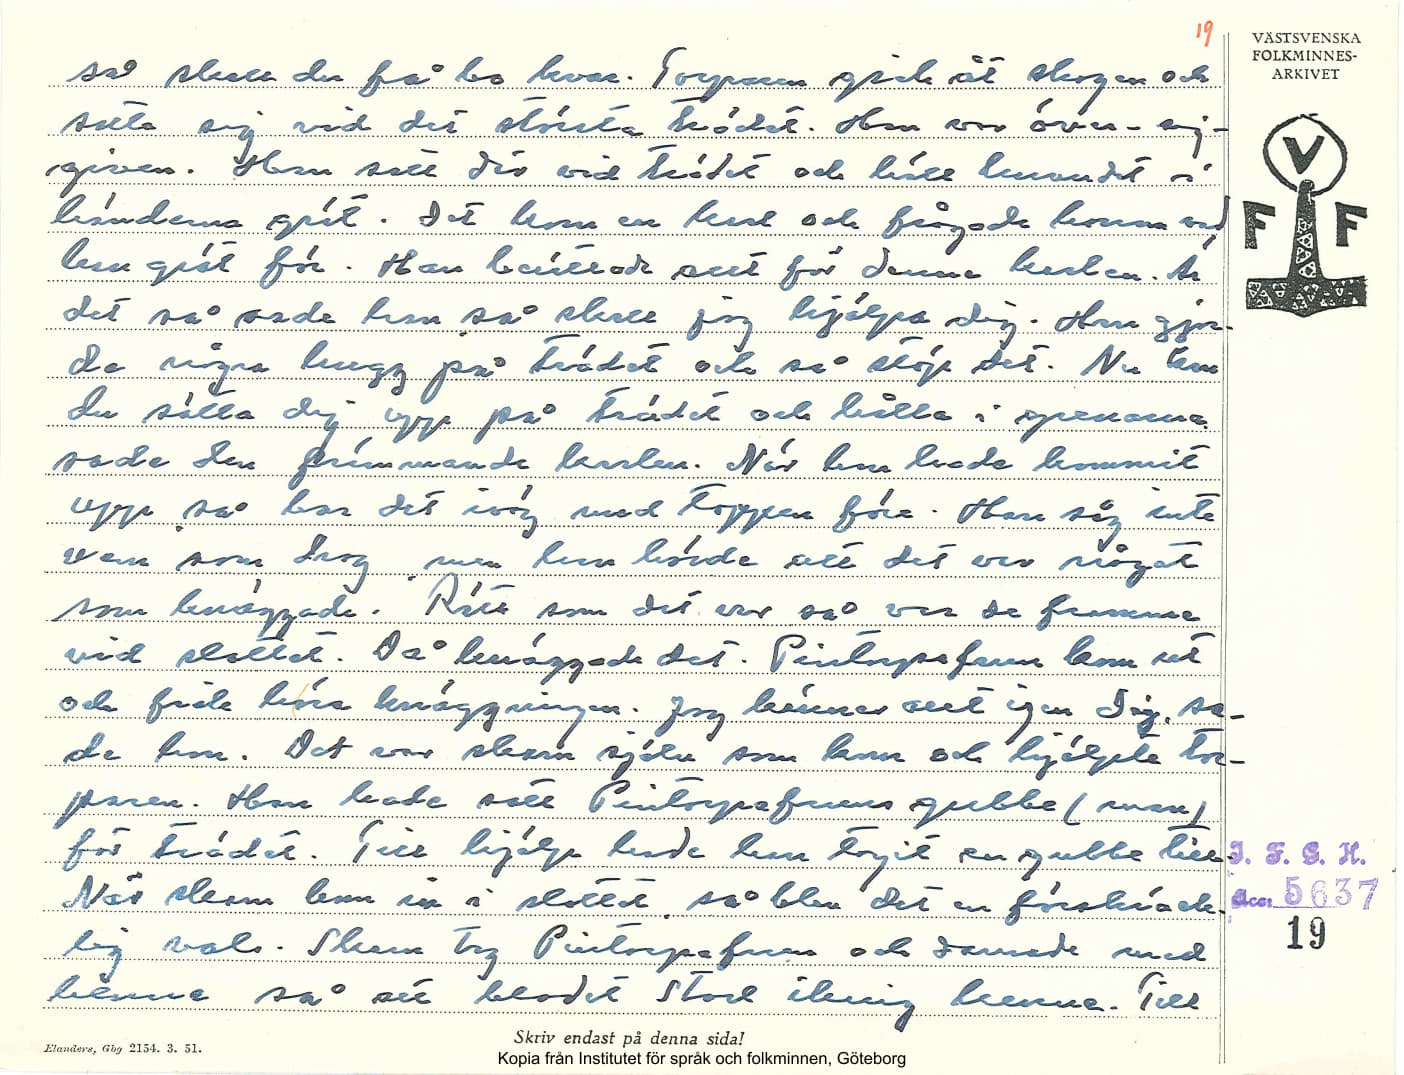 19
VÄSTSVENSKA
FOLKMINNES-
ARKIVET
så skall du få bo kvar. Torparen gick åt skogen och
satte sig vid det största trädet. Han var över- sig-
given. Han satt där vid trädet och höll huvudet i
händerna grät. Det kom en karl och frågade honom vad
han grät för. Han berättade allt för denne karlen. Är
det så sade han så skall jag hjälpa dig. Han gjor-
de några hugg på trädet och så stöp det. Nu kan
du sätta dig upp på trädet och hålla i grenarna
sade den främmande karlen. När han hade kommit
upp så bar det iväg med toppen före. Han såg inte
vem som drog men han hörde att det var något
som knäggade. Rätt som det var så var de framme
vid slottet. Då knäggade det. Pintorpafrun kom ut
och fick höra knäggningen. Jag känner allt igen dig, sa-
de hon. Det var skam själv som kom och hjälpte tor-
paren. Han hade satt Pintorpafruns gubbe (man)
för trädet. Till hjälp hade han tagit en gubbe till
När skam kom in i slottet så blev det en förskräck-
lig vals. Skam tog Pintorpafrun och dansade med
henne så att blodet stod ikring henne. Till
V
F F
I. F. G. H.
Acc. 5637
19
Skriv endast på denna sida!
Elanders, Gbg 2154. 3. 51.
Kopia från Institutet för språk och folkminnen, Göteborg